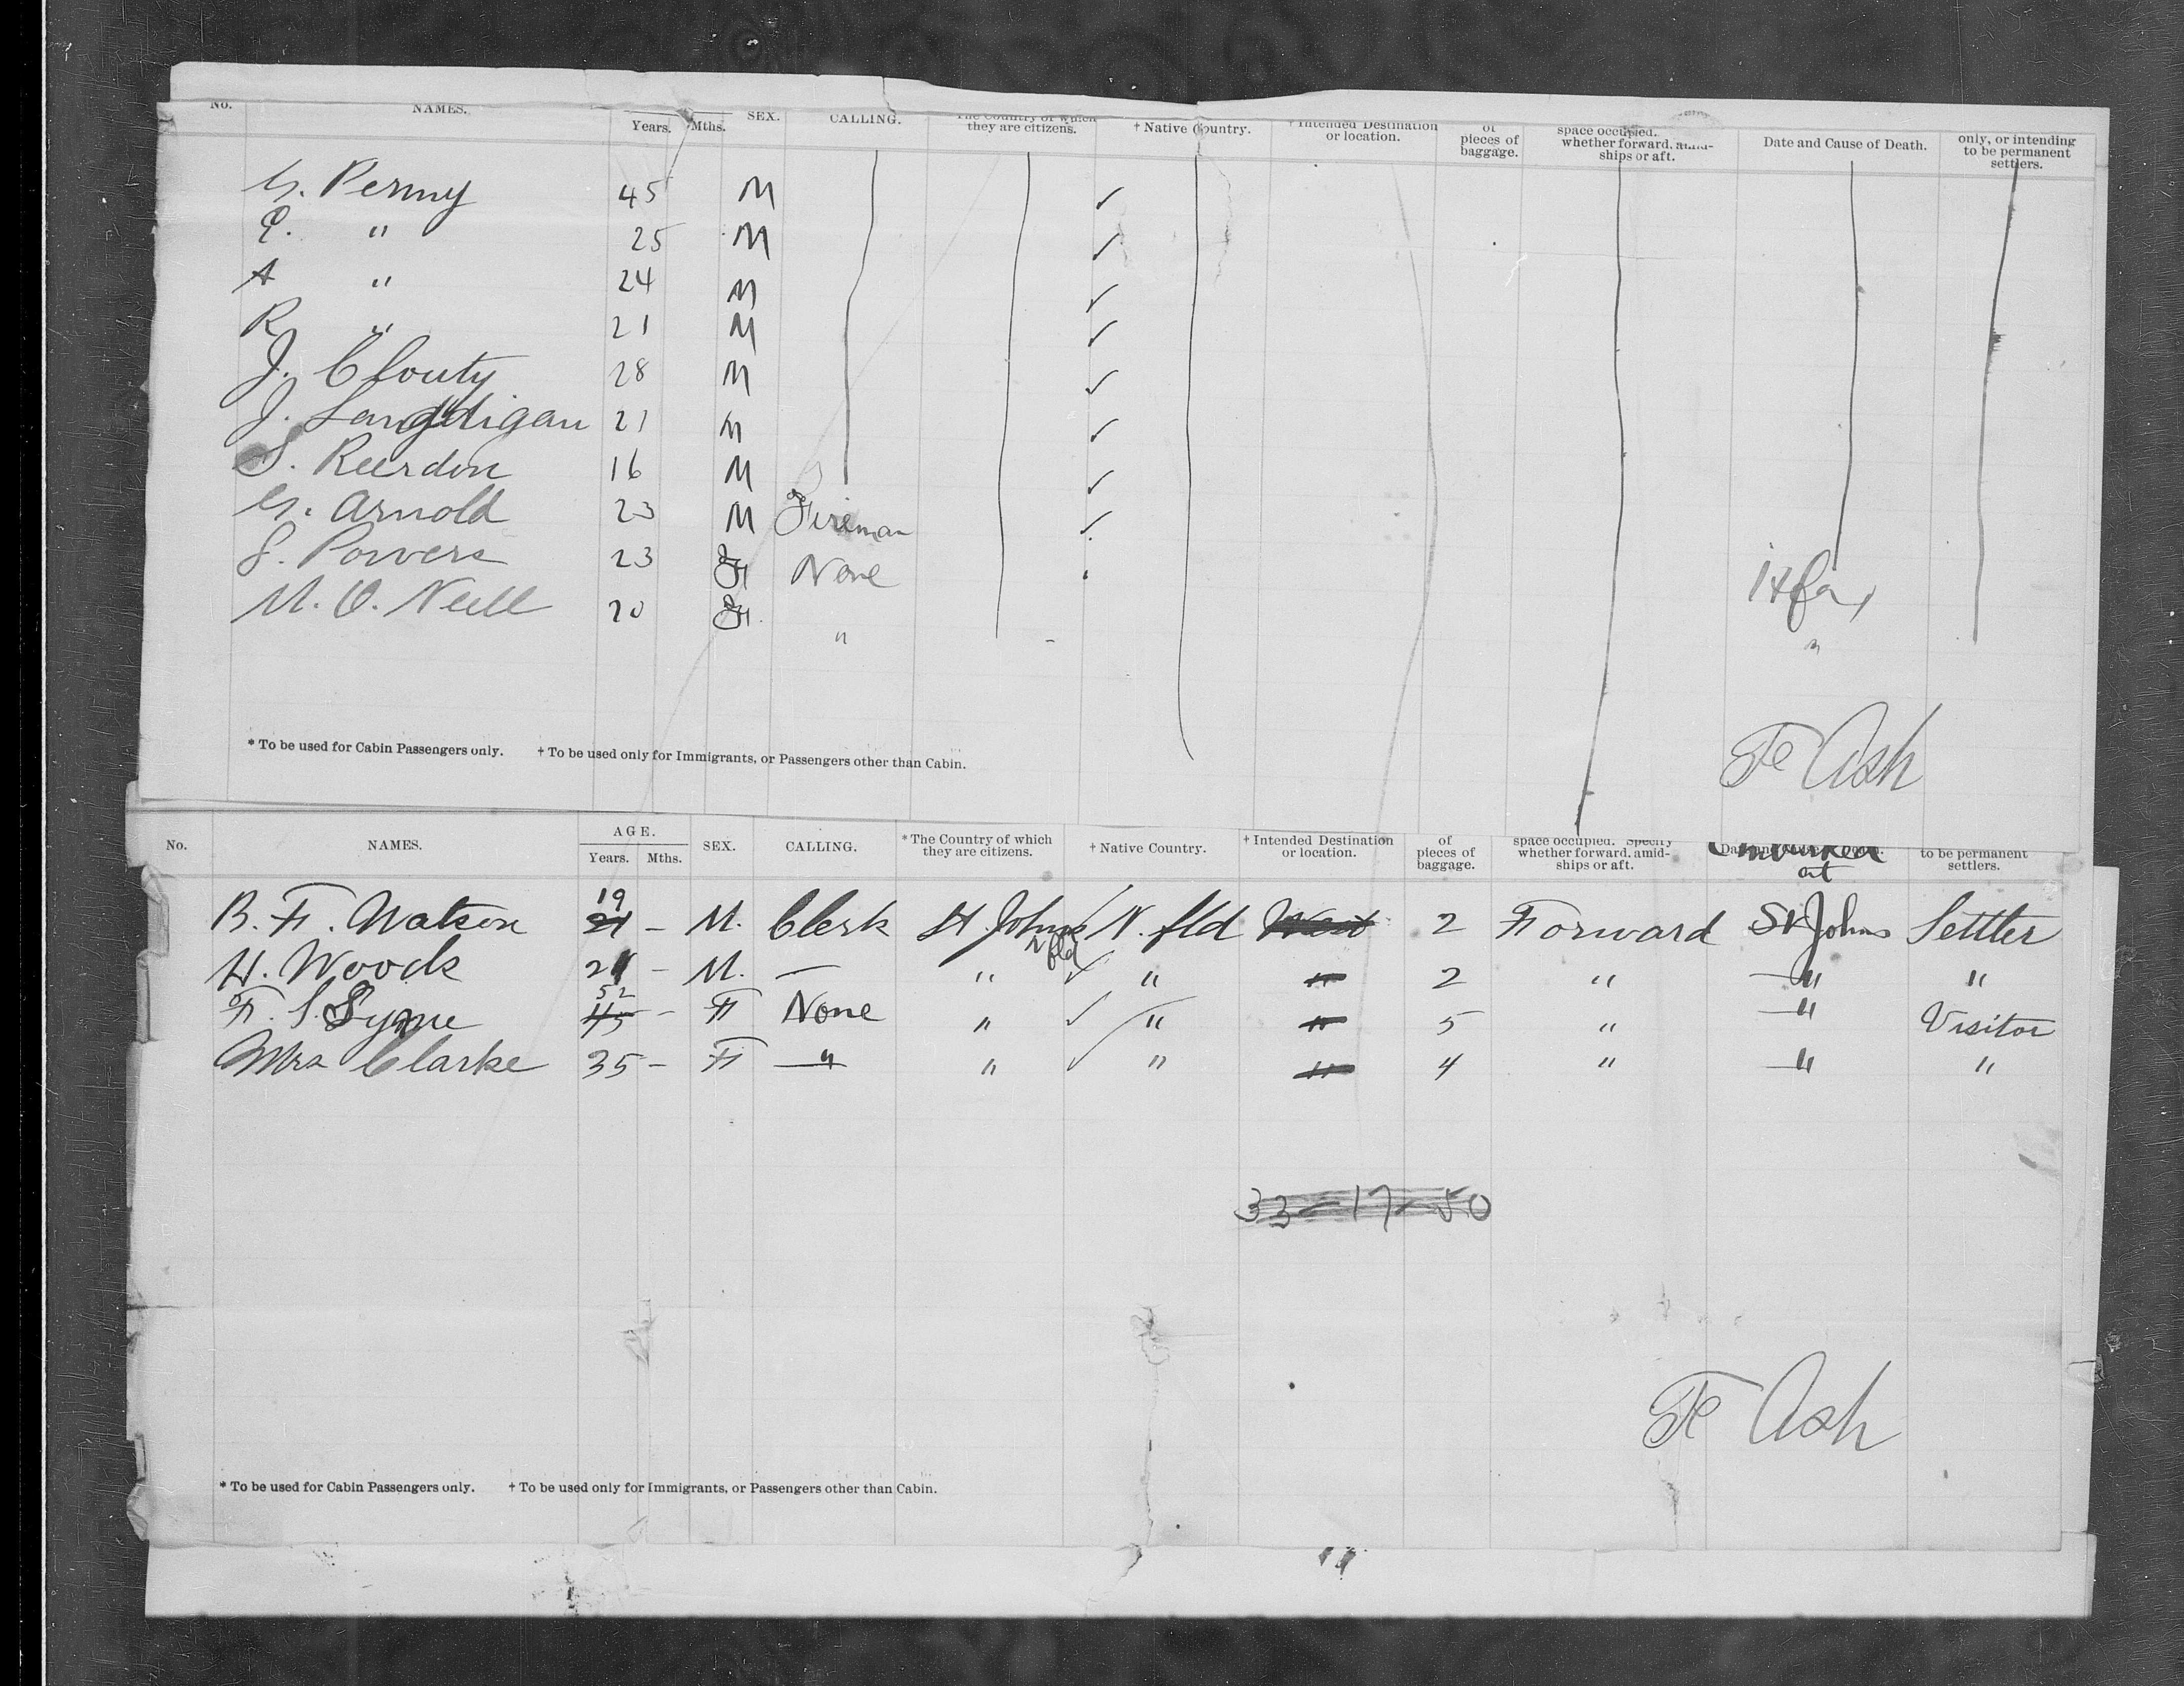 No. NAMES. Years. Mths. SEX. CALLING. The Country of which they are citizens. † Native Country. † Intended Destination or location. of pieces of baggage. space occupied. whether forward, amid-ships or aft. Date and Cause of Death. only, or intending to be permanent settlers.
G. Penny 45 M ✓
E. " 25 M ✓
A " 24 M ✓
R " 21 M ✓
J. Clouty 28 M ✓
J. 21 M ✓
S. Reerdon 16 M ✓
G. Arnold 23 M Fireman ✓
S. Powers 23 F None Hfax
M. O. Neill 20 F. " "
* To be used for Cabin Passengers only. † To be used only for Immigrants, or Passengers other than Cabin.
Ash
No. NAMES. AGE. Years. Mths. SEX. CALLING. * The Country of which they are citizens. † Native Country. † Intended Destination or location. of pieces of baggage. space occupied. Specify whether forward, amid-ships or aft. Embarked at to be permanent settlers.
B. F. Watson 19 21 - M. Clerk St. Johns Nfld ✓ N. fld West 2 Forward St Johns Settler
H. Woods 21 - M. — " ✓ " " 2 " " "
F. S. Syme 52 45 - F None " ✓ " " 5 " " Visitor
Mrs Clarke 35 - F " " ✓ " " 4 " " "
33-17-50
Ash
* To be used for Cabin Passengers only. † To be used only for Immigrants, or Passengers other than Cabin.